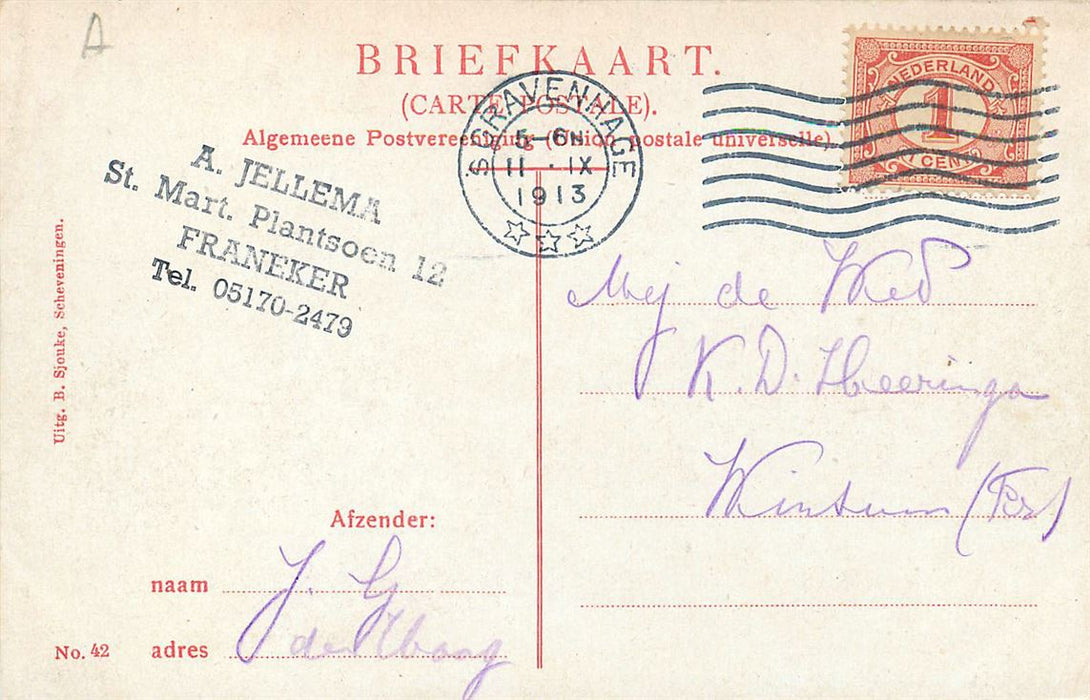 A
BRIEFKAART.
(CARTE POSTALE).
Algemeene Postvereeniging (Union postale universelle)
NEDERLAND
1
1 CENT
S GRAVENHAGE
5-6N
11 · IX
1913
A. JELLEMA
St. Mart. Plantsoen 12
FRANEKER
Tel. 05170-2479
Uitg. B. Sjouke, Scheveningen.
Mej de Wed
K. D. Heeringa
Winsum (Fr)
Afzender:
naam J. G
adres den Haag
No. 42